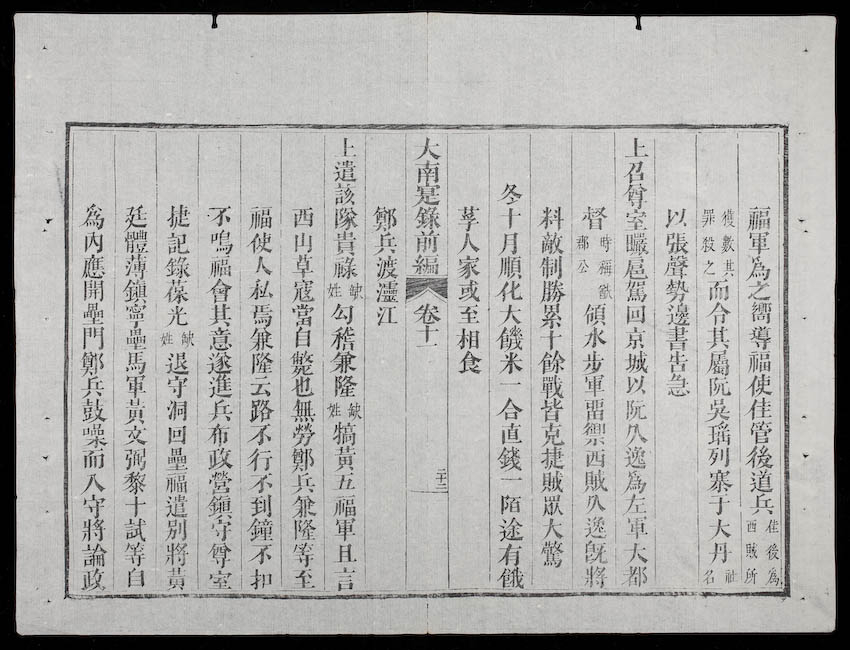 福軍爲之嚮導福使佳管後道兵佳後爲西賊所
獲數其罪殺之而合其屬阮吳瑤列寨于大丹社名
以張聲勢邊書告急
上召尊室曮扈駕回京城以阮久逸爲左軍大都
督時稱猷郡公領水步軍畱禦西賊久逸旣將
料敵制勝累十餘戰皆克捷賊眾大驚
冬十月順化大饑米一合直錢一陌途有餓
莩人家或至相食
大南寔錄前編 卷十一 二十三
鄭兵渡江
上遣該隊貴祿缺姓勾稽兼隆缺姓犒黃五福軍且言
西山草寇當自斃也無勞鄭兵兼隆等至
福使人私焉兼隆云路不行不到鐘不扣
不鳴福會其意遂進兵布政營鎭守尊室
捷記錄葆光缺姓退守洞回壘福遣別將黃
廷體薄鎭寧壘馬軍黃文弼黎十試等自
爲內應開壘門鄭兵鼓噪而入守將論政